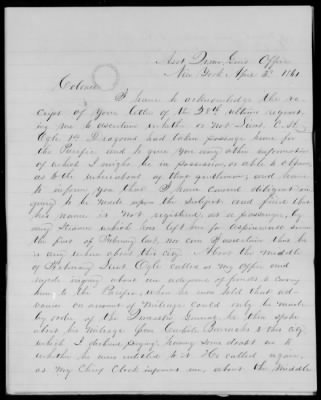 Asst Qr Mr. Genls Office
New York April 3d 1861
Colonel
I have to acknowledge the re-
ceipt of your letter of the 28th ultimo request-
ing me to ascertain whether or not Lieut. C. H.
Ogle 1st Dragoons had taken passage here for
the Pacific and to give you any other information
of which I might be in possession, or able to obtain
as to the whereabouts of that gentleman; and have
to inform you that I have caused diligent in-
quiry to be made upon the subject and find that
his name is not registered, as a passenger, by
any Steamer which has left here for Aspinwall since
the first of February last, nor can I ascertain that he
is any where about this city. About the middle
of February Lieut Ogle called at my office and
made inquiry about an advance of funds to carry
him to the Pacific, when he was told that ad-
vances on account of Mileage could only be made
by order of the Quarter General, he then spoke
about his Mileage from Carlisle Barracks to this city
which I declined paying, having some doubt as to
whether he was entitled to it. He called again,
as my Chief Clerk informs me, about the middle